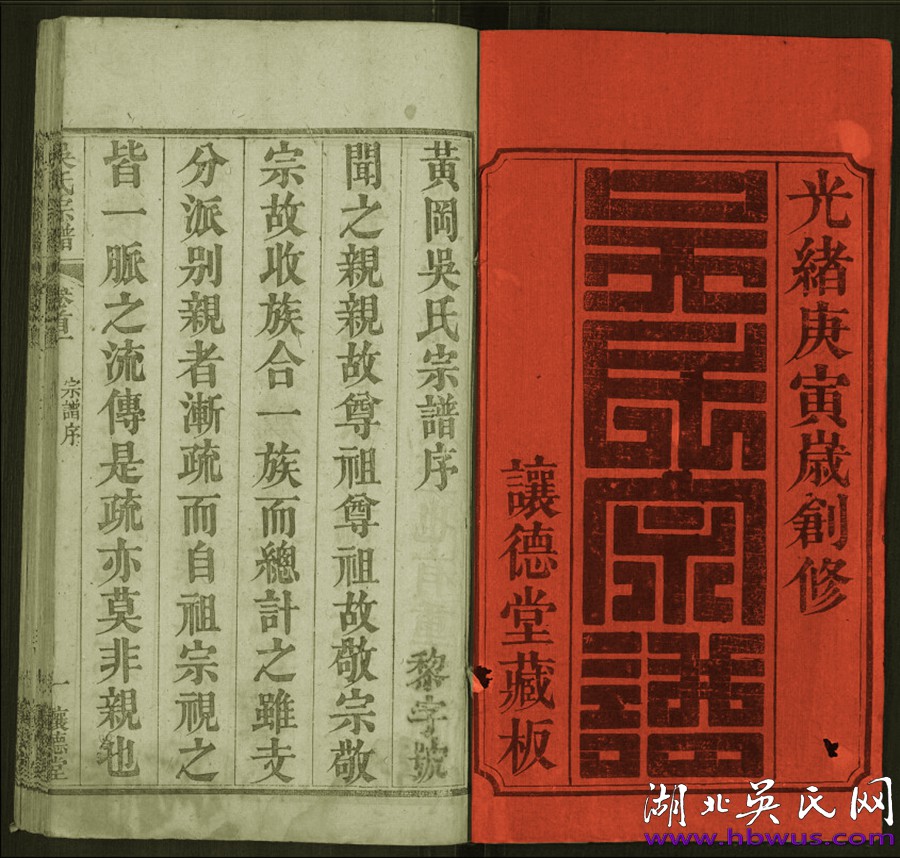 光緒庚寅歲創修
吳氏宗譜
讓德堂藏板
黃岡吳氏宗譜序
黎字號
聞之親親故尊祖尊祖故敬宗敬
宗故收族合一族而總計之雖支
分派別親者漸疏而自祖宗視之
皆一脈之流傳是疏亦莫非親也
吳氏宗譜
卷首
宗譜序
一
讓德堂
湖北吳氏网
www.hbwus.com